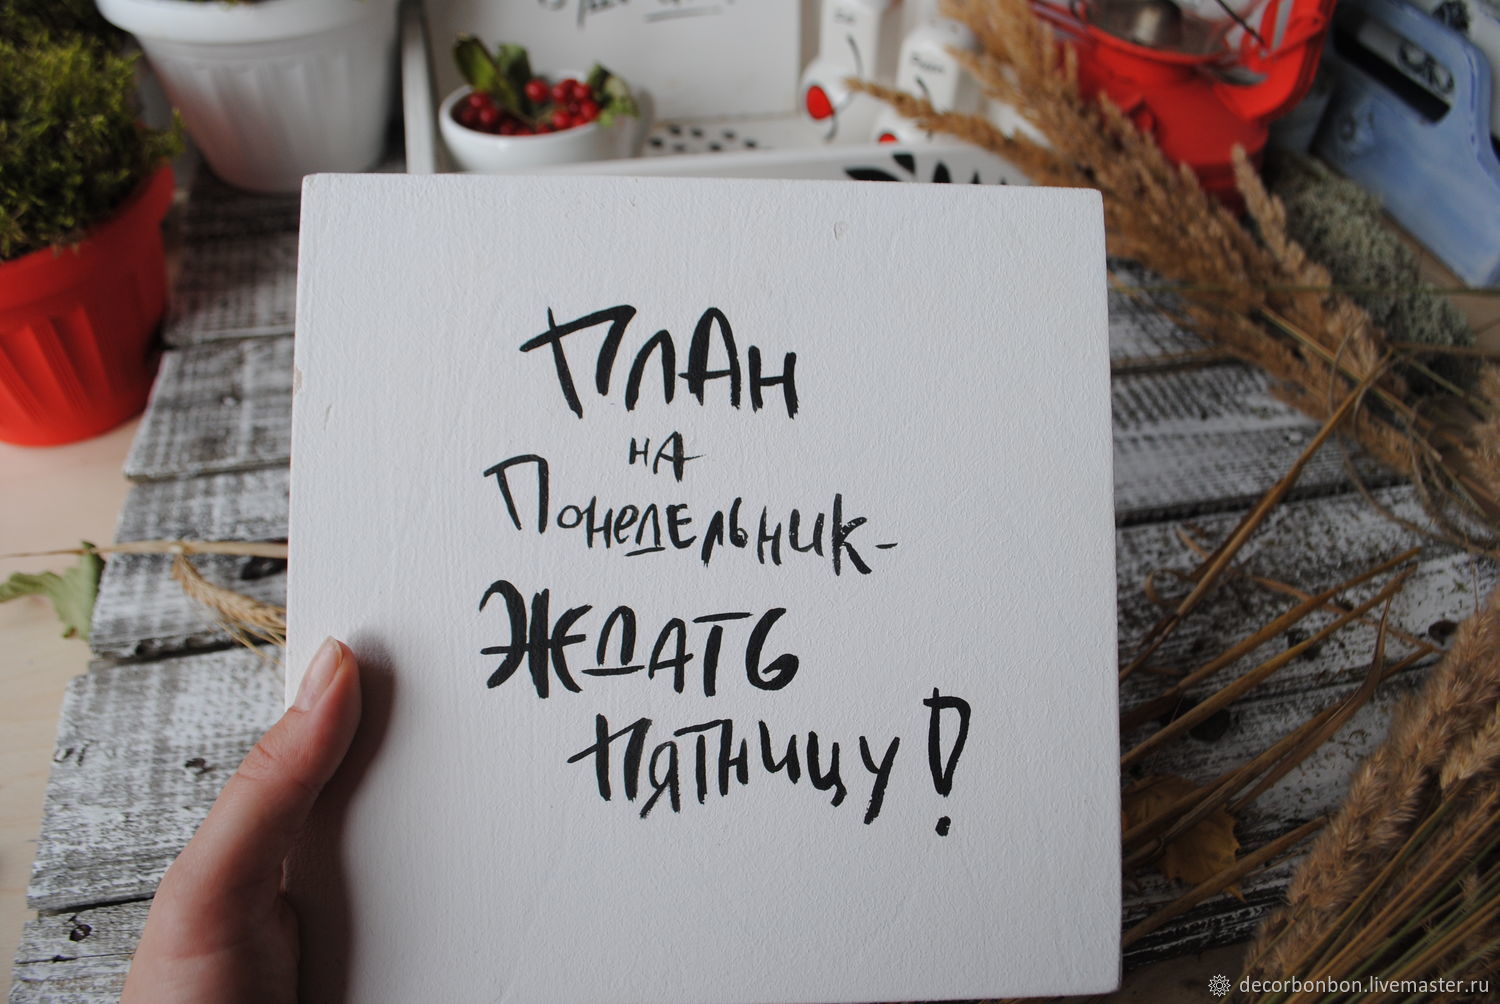 ПЛАН
НА
ПОНЕДЕЛЬНИК-
ЖДАТЬ
ПЯТНИЦУ!
decorbonbon.livemaster.ru